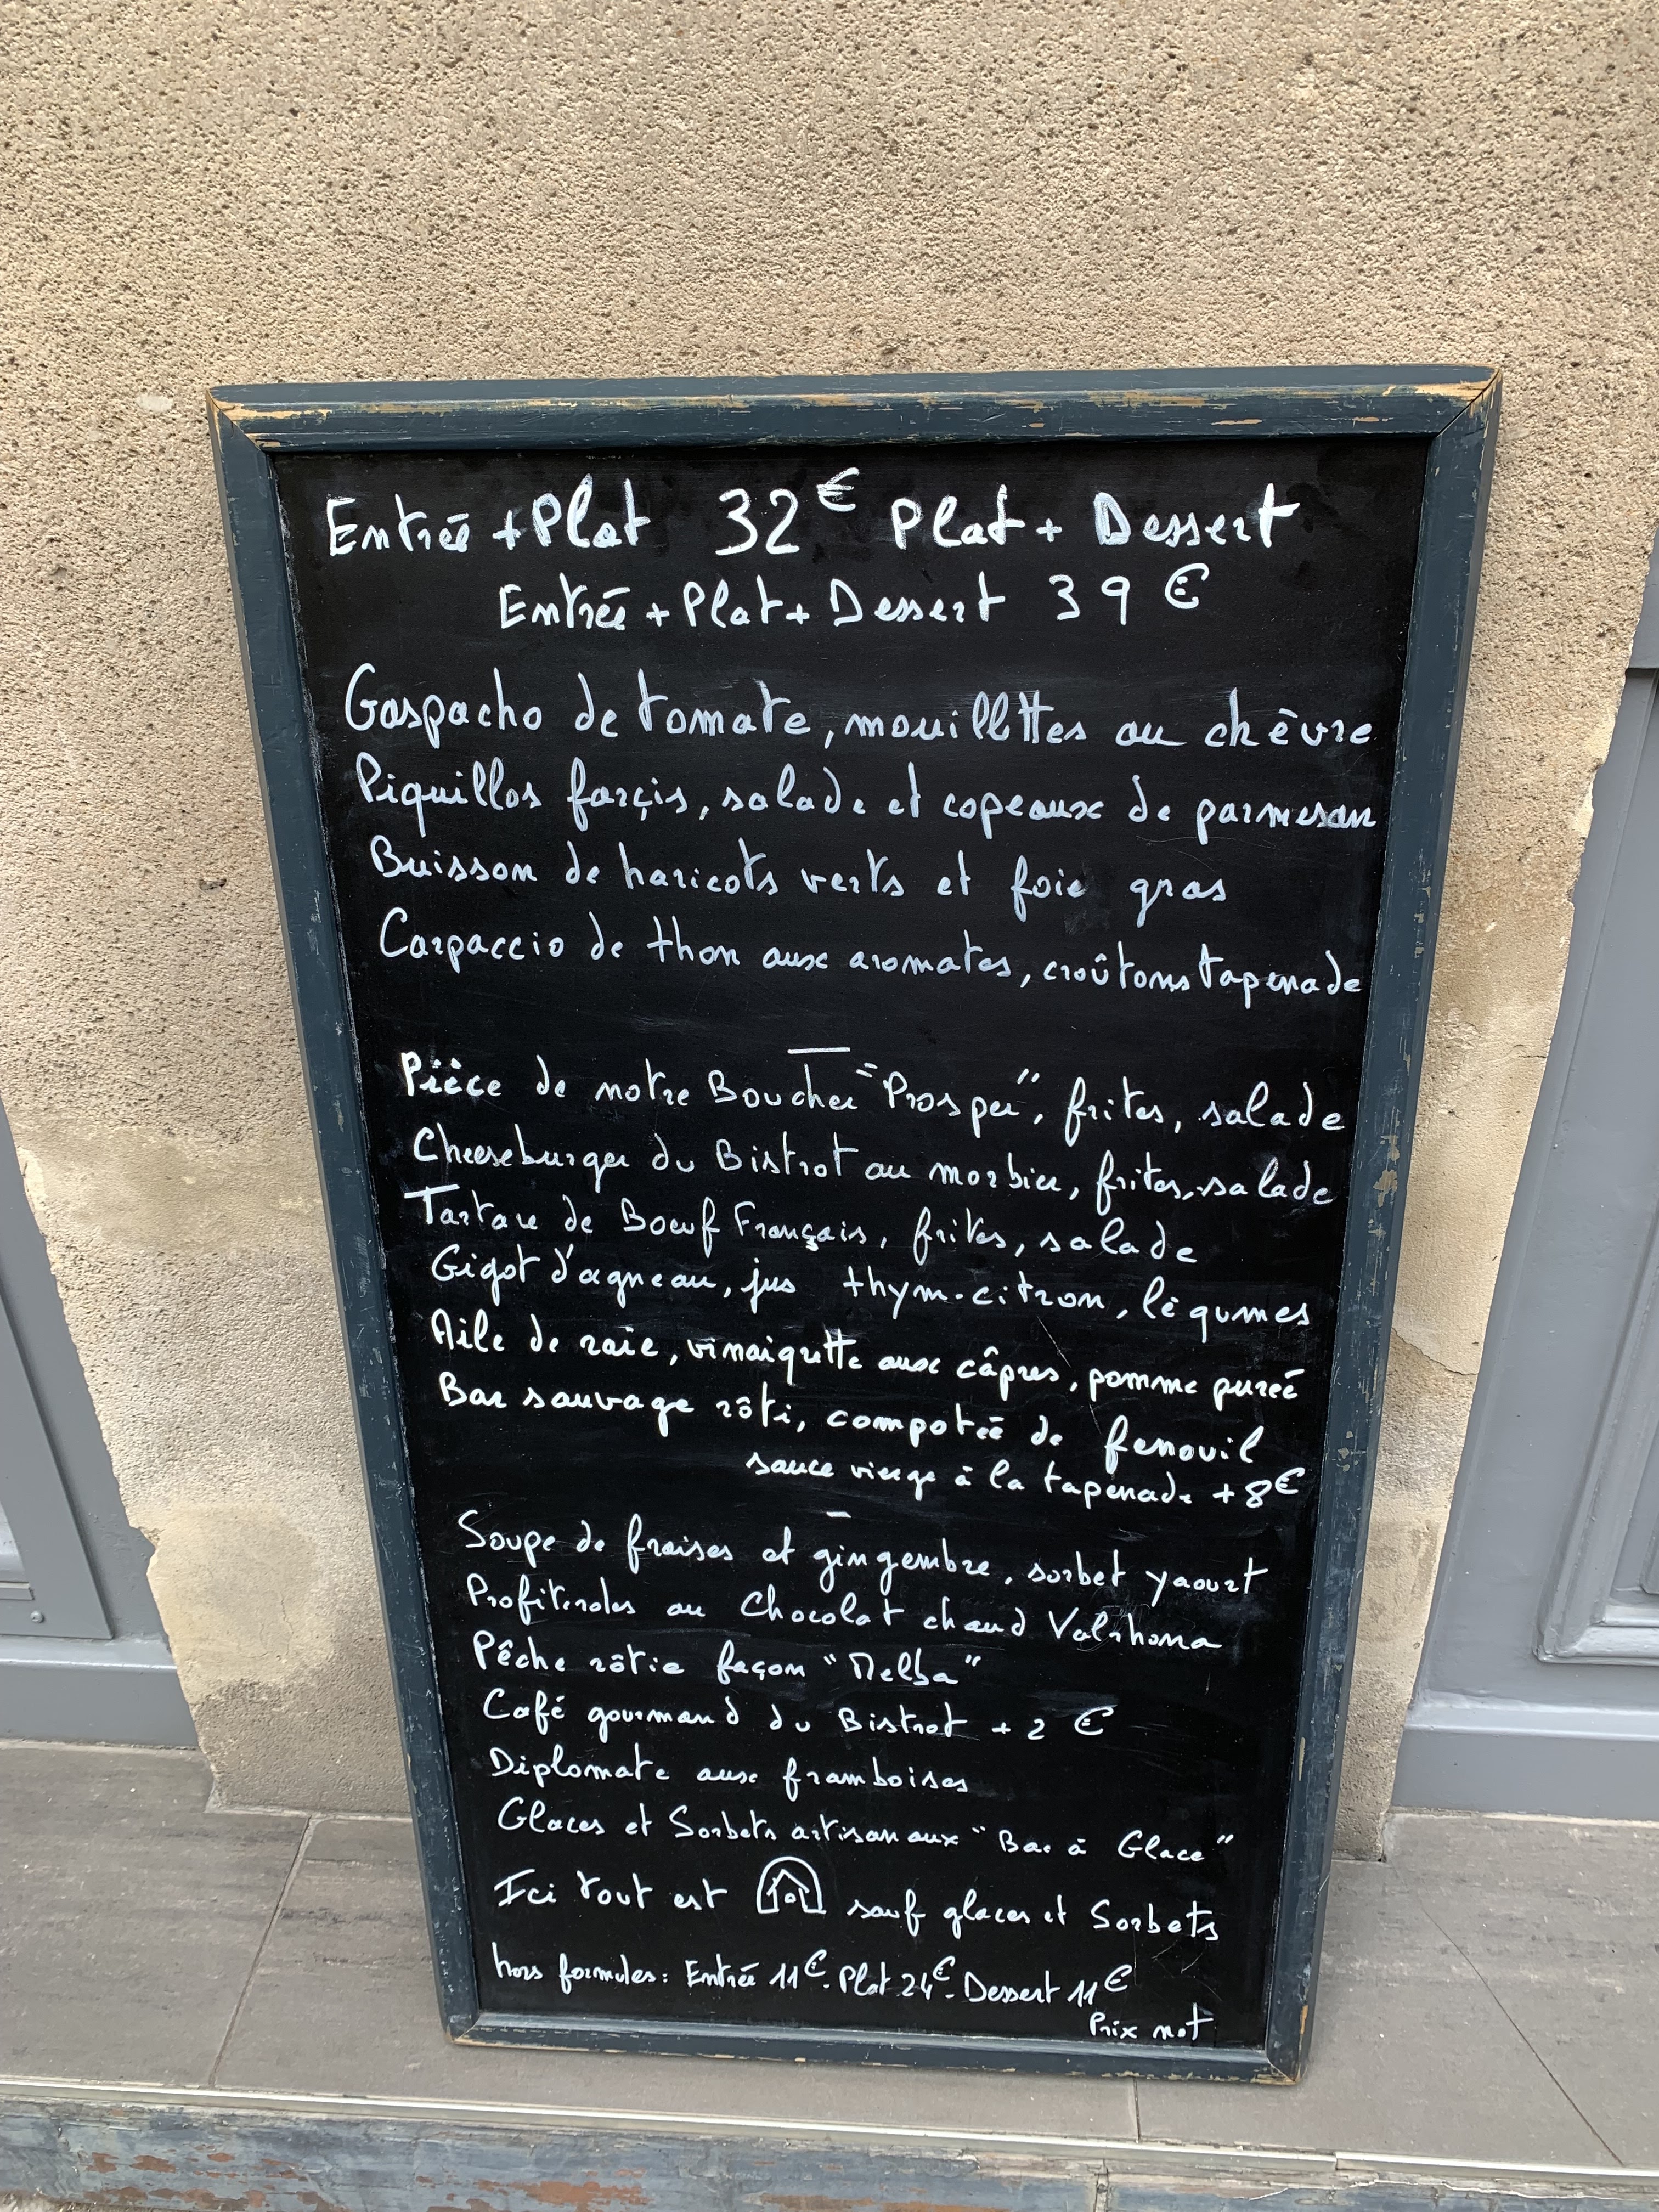 Entrée + Plat 32€ Plat + Dessert
Entrée + Plat + Dessert 39 €
Gaspacho de tomate, mouillettes au chèvre
Piquillos farçis, salade et copeaux de parmesan
Buisson de haricots verts et foie gras
Carpaccio de thon aux aromates, croûtons tapenade
Pièce de notre Boucher "Prosper", frites, salade
Cheeseburger du Bistrot au morbier, frites, salade
Tartare de Boeuf Français, frites, salade
Gigot d'agneau, jus thym-citron, légumes
Aile de raie, vinaigrette aux câpres, pomme pureé
Bar sauvage rôti, compotée de fenouil
sauce vierge à la tapenade + 8€
Soupe de fraises et gingembre, sorbet yaourt
Profiteroles au Chocolat chaud Valrhona
Pêche rôtie façon "Melba"
Café gourmand du Bistrot + 2 €
Diplomate aux framboises
Glaces et Sorbets artisanaux "Bac à Glace"
Ici tout est sauf glaces et Sorbets
hors formules : Entrée 11€ - Plat 24€ - Dessert 11€
Prix net